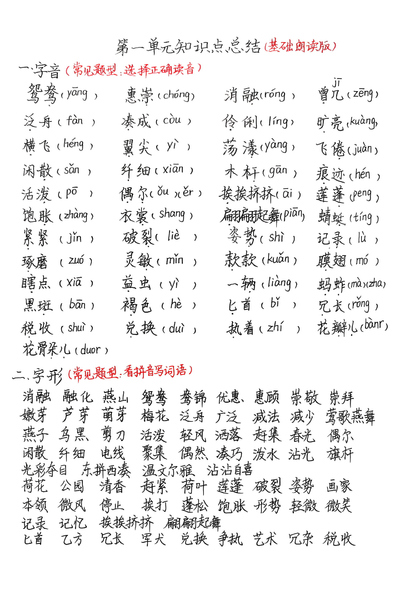 第一单元知识点总结(基础朗读版)
一.字音(常见题型:选择正确读音)
鸳鸯(yāng) 惠崇(chóng) 消融(róng) 曾几(jǐ)(zēng)
泛舟(fàn) 凑成(còu) 伶俐(líng) 旷亮(kuàng)
横飞(héng) 翼尖(yì) 荡漾(yàng) 飞倦(juàn)
闲散(sǎn) 纤细(xiān) 木杆(gān) 痕迹(hén)
活泼(pō) 偶尔(ǒu)(ěr) 挨挨挤挤(āi) 莲蓬(peng)
饱胀(zhàng) 衣裳(shang) 翩翩起舞(piān) 蜻蜓(tíng)
紧紧(jǐn) 破裂(liè) 姿势(shì) 记录(lù)
琢磨(zuó) 灵敏(mǐn) 款款(kuǎn) 膜翅(mó)
瞎点(xiā) 益虫(yì) 一辆(liàng) 蚂蚱(mà)(zha)
黑斑(bān) 褐色(hè) 匕首(bǐ) 冗长(rǒng)
税收(shuì) 兑换(duì) 执着(zhí) 花瓣儿(bànr)
花骨朵儿(duor)
二.字形(常见题型:看拼音写词语)
消融 融化 燕山 鸳鸯 鸯锦 优惠、惠顾 崇敬 崇拜
嫩芽 芦芽 萌芽 梅花 泛舟 广泛 减法 减少 莺歌燕舞
燕子 乌黑、剪刀 活泼 轻风 洒落 赶集 春光 偶尔
闲散 纤细 电线 聚集 偶然 凑巧 泼水 沾光 旗杆
光彩夺目 东拼西凑 温文尔雅 沾沾自喜
荷花 公园 清香 赶紧 荷叶 莲蓬 破裂 姿势 画家
本领 微风 停止 挨打 蓬松 饱胀 形势 轻微 微笑
记录 记忆 挨挨挤挤 翩翩起舞
匕首 乙方 冗长 军犬 兑换 争执 艺术 冗杂 税收